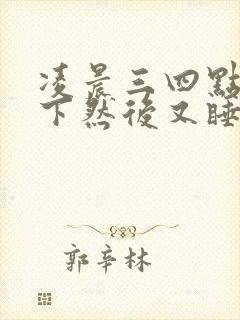 凌晨三四點
下然後又睡
郭辛林